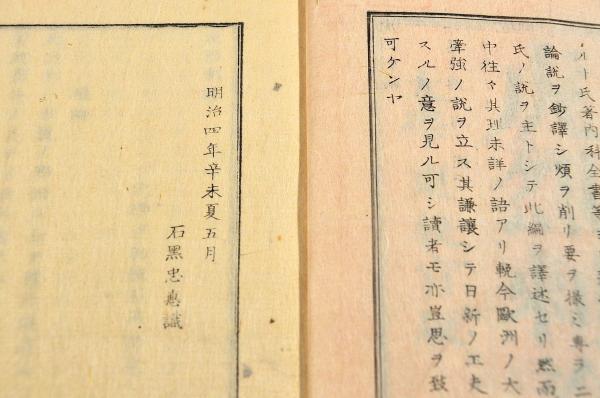 ルト氏著内科全書等
論說ヲ鈔譯シ煩ヲ削リ要ヲ撮ミ專ラニ
氏ノ說ヲ主トシテ此綱ヲ譯述セリ然而
中往々其理未詳ノ語アリ輓今歐洲ノ大
牽強ノ說ヲ立ス其謙讓シテ日新ノ工夫
スルノ意ヲ見ル可シ讀者モ亦豈思ヲ致
可ケンヤ
明治四年辛未夏五月
石黑忠悳識